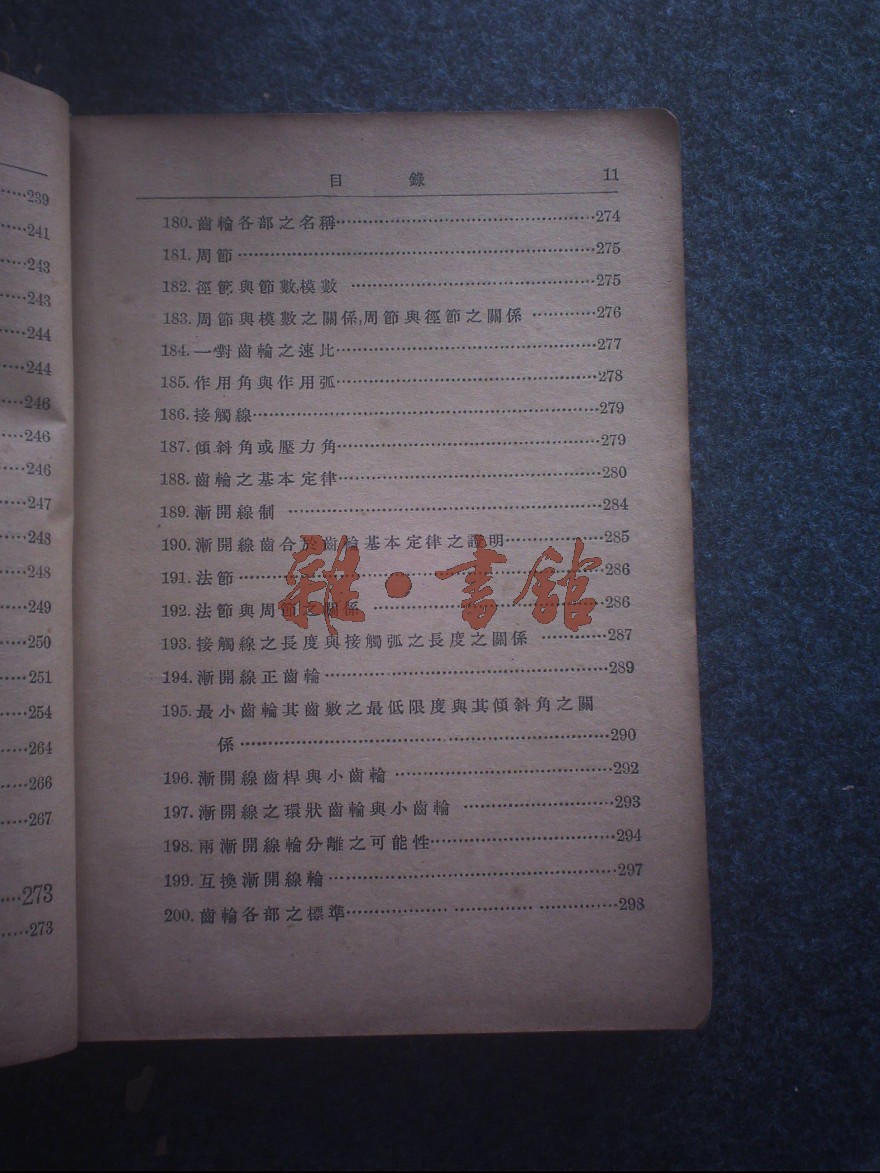 ……239
……241
……243
……243
……244
……244
……246
……246
……246
……247
……248
……248
……249
……250
……251
……254
……264
……266
……267
……273
……273
目 錄 11
180. 齒輪各部之名稱……274
181. 周節……275
182. 徑節與節數,模數……275
183. 周節與模數之關係,周節與徑節之關係……276
184. 一對齒輪之速比……277
185. 作用角與作用弧……278
186. 接觸線……279
187. 傾斜角或壓力角……279
188. 齒輪之基本定律……280
189. 漸開線制……284
190. 漸開線齒合於齒輪基本定律之證明……285
191. 法節……286
192. 法節與周節之關係……286
193. 接觸線之長度與接觸弧之長度之關係……287
194. 漸開線正齒輪……289
195. 最小齒輪其齒數之最低限度與其傾斜角之關
係……290
196. 漸開線齒桿與小齒輪……292
197. 漸開線之環狀齒輪與小齒輪……293
198. 兩漸開線輪分離之可能性……294
199. 互換漸開線輪……297
200. 齒輪各部之標準……298
雜·書館